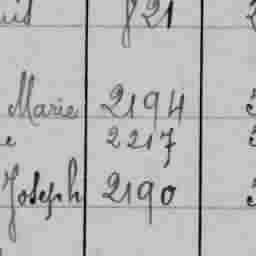 821
Marie 2194
2217
Joseph 2190